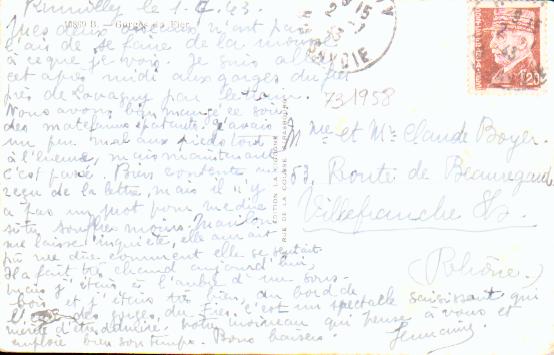 Rumilly le 1-7-43
10869 B. - Gorges du Fier
Mes deux oiseaux n'ont pas
l'air de se faire de la mousse
à ce que je vois. Je suis allée
cet après midi aux gorges du fier
près de Lovagny par le train.
Nous avons bien mangé ce soir
des matefaims épatants. J'avais
un peu mal aux pieds tout
à l'heure, mais maintenant
c'est passé. Bien contente
reçu de la lettre, mais il n'y
a pas un mot pour me dire
si tu souffres moins. Maman
me laisse inquiète, elle aurait
pu me dire comment elle se sentait.
Il a fait très chaud aujourd'hui,
mais j'étais à l'ombre d'un sous-
bois et j'étais très bien, du bord de
des gorges du Fier, c'est un spectacle saisissant qui
mérite d'être admiré. Votre moineau qui pense à vous et
emploie bien son temps. Bons baisers
Germaine
ÉDITION LA CIGOGNE
RUE DE LA COURSE, STRASBOURG
25 15
SAVOIE
1F25
73/1958
Mme et Mr Claude Boyer
53, Route de Beauregard
Villefranche s/s.
(Rhône.)